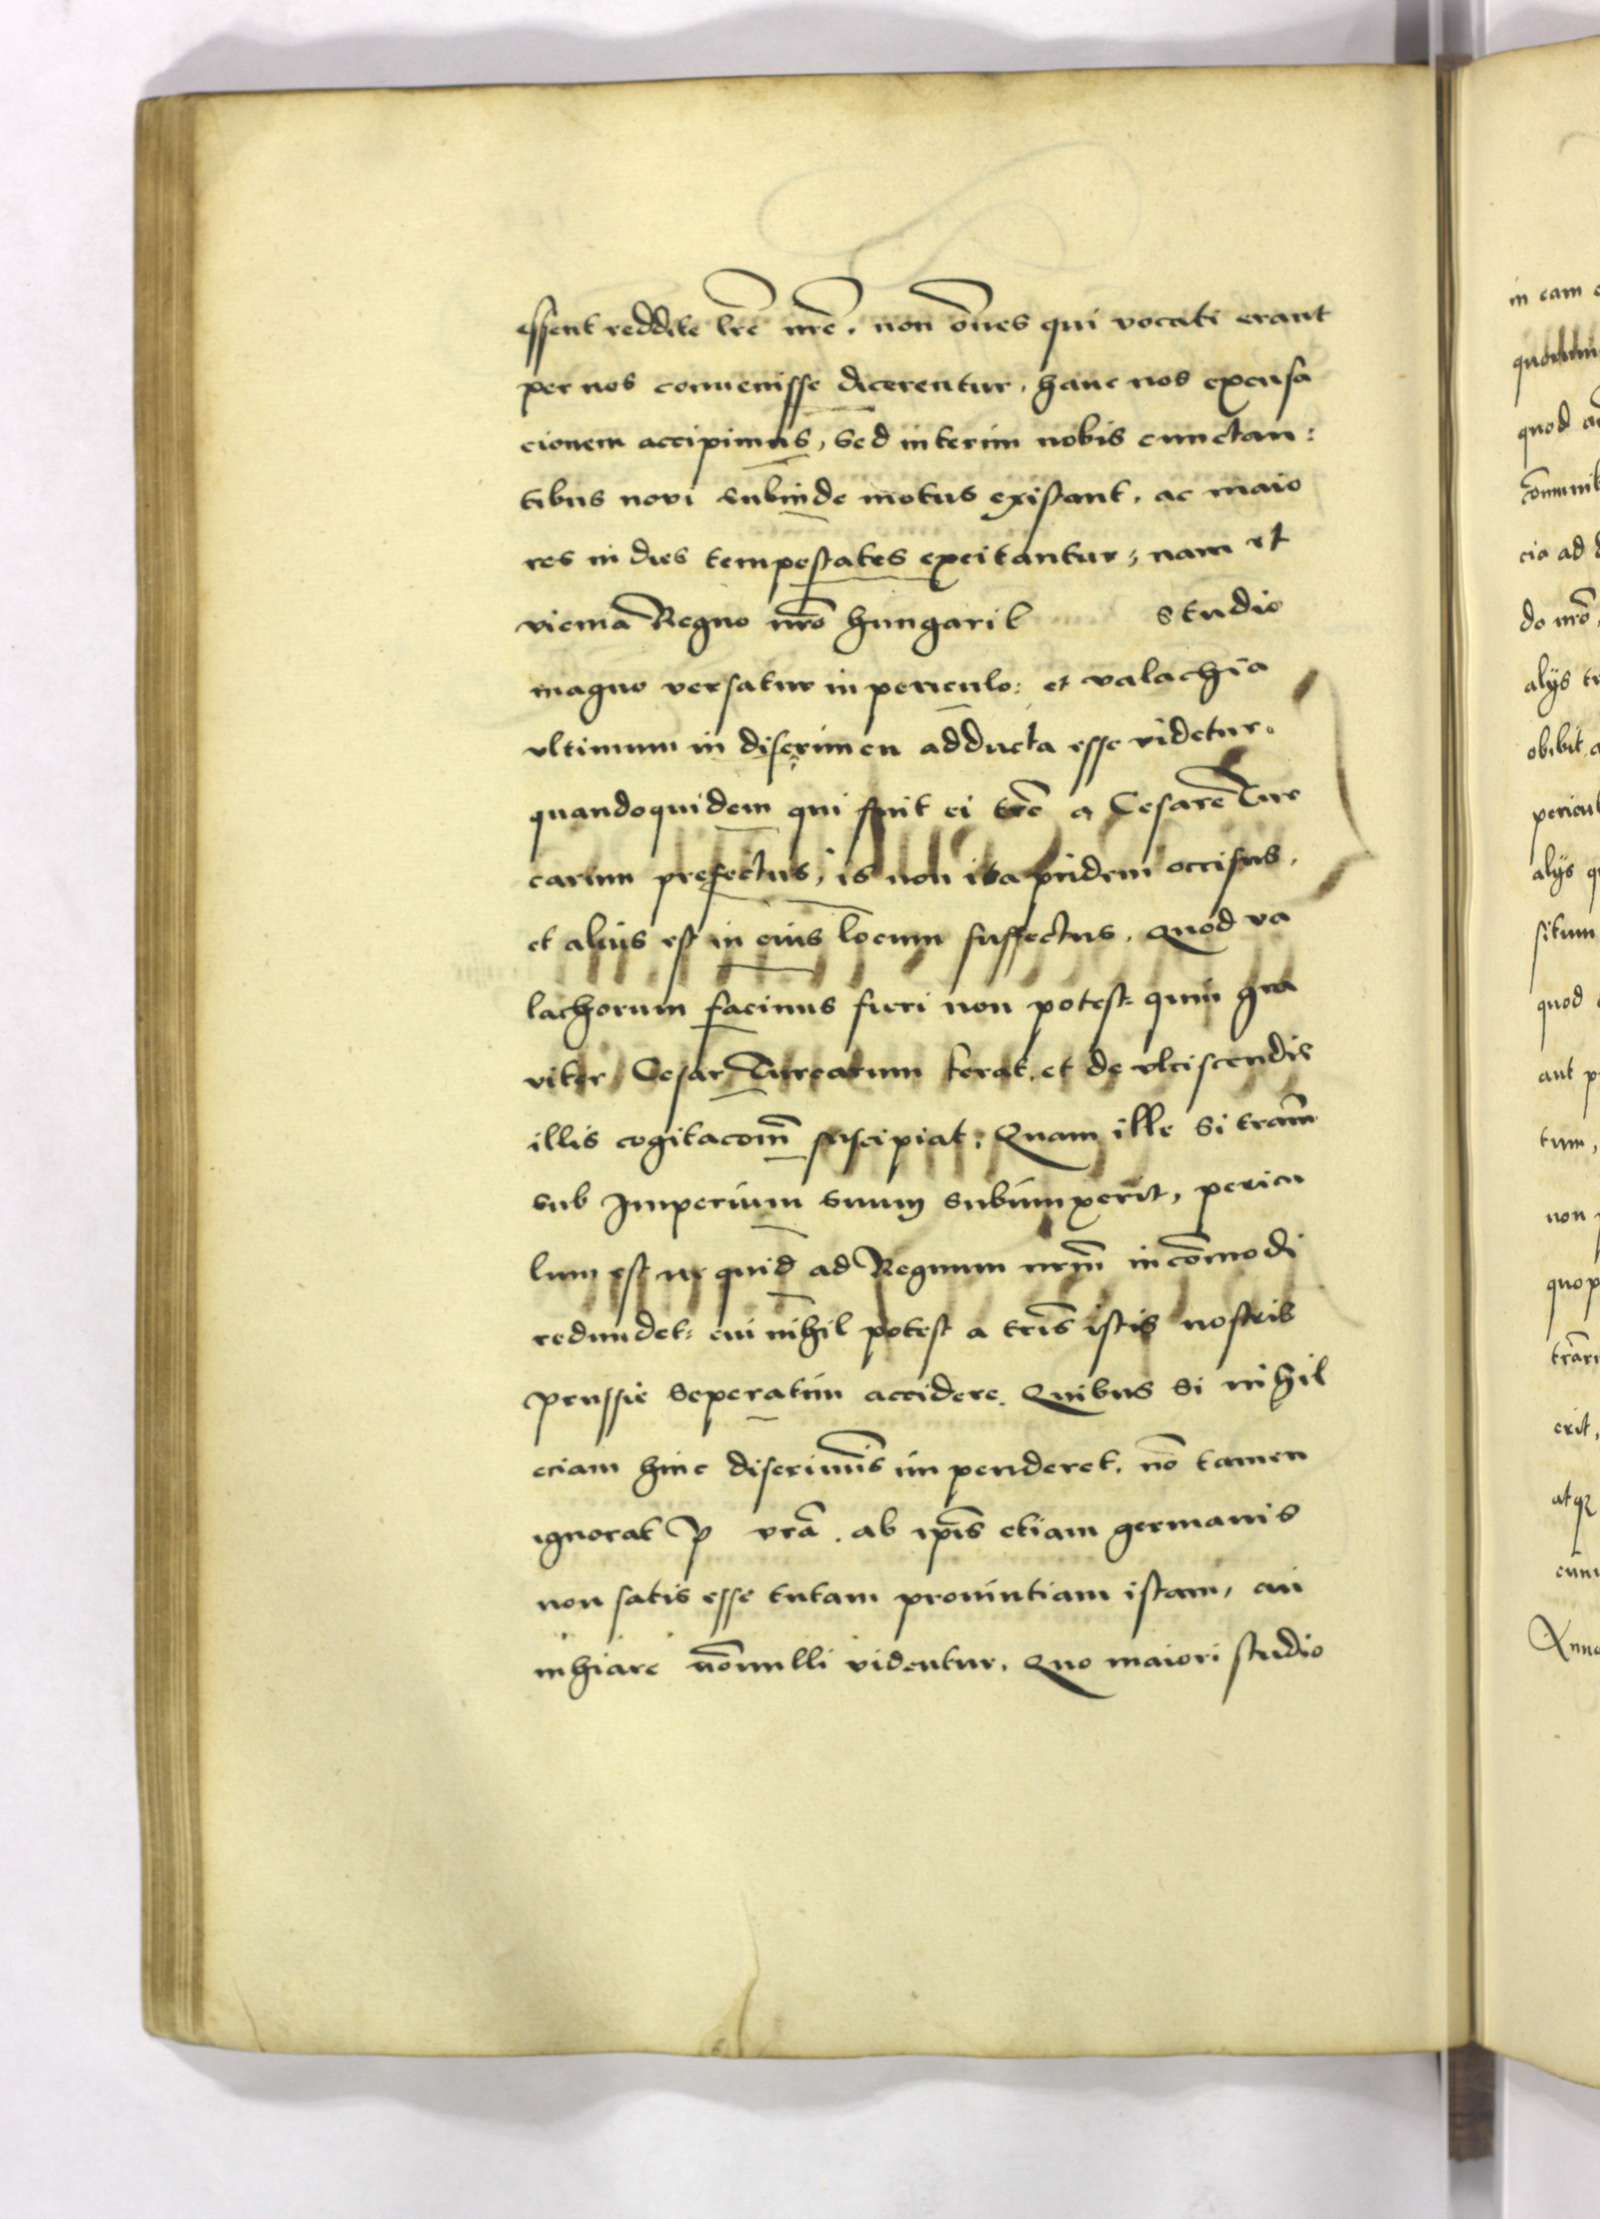 essent reddite lrē nrē, non ōnes qui vocati erant
per nos convenisse dicerentur, hanc nos excusa
cionem accipimus, Sed interim nobis cunctan:
tibus novi subinde motus existant, ac maio
res in dies tempestates excitantur, nam et
vicina Regno nrō hungarie studio
magno versatur in periculo: et valachia
ultimum in discrimen adducta esse videtur.
quandoquidem qui fuit ei trē a Cesare Tur
carum prefectus, is non ita pridem occisus,
et alius est in eius locum suffectus. Quod va
lachorum facinus fieri non potest quin gra
viter Cesar Turcarum ferat, et de ulciscendis
illis cogitacoēm suscipiat. Quam ille si trām
sub Imperium suum subiunxerit, pericu
lum est ne quid ad Regnum nrm̄ incōmodi
redundet: cui nihil potest a trīs istis nostris
prussie seperatim accidere. Quibus si nihil
eciam hinc discriminis impenderet, nō tamen
ignorat P vrā. ab ipīs etiam germanis
non satis esse tutam provintiam istam, cui
inhiare nōnulli videntur. Quo maiori studio

in eam
quod
cia ad
do nrō,
alijs
obibit,
pericul
alijs q
situm
quod
aut p
tum,
non
quop
erit,
atq₃